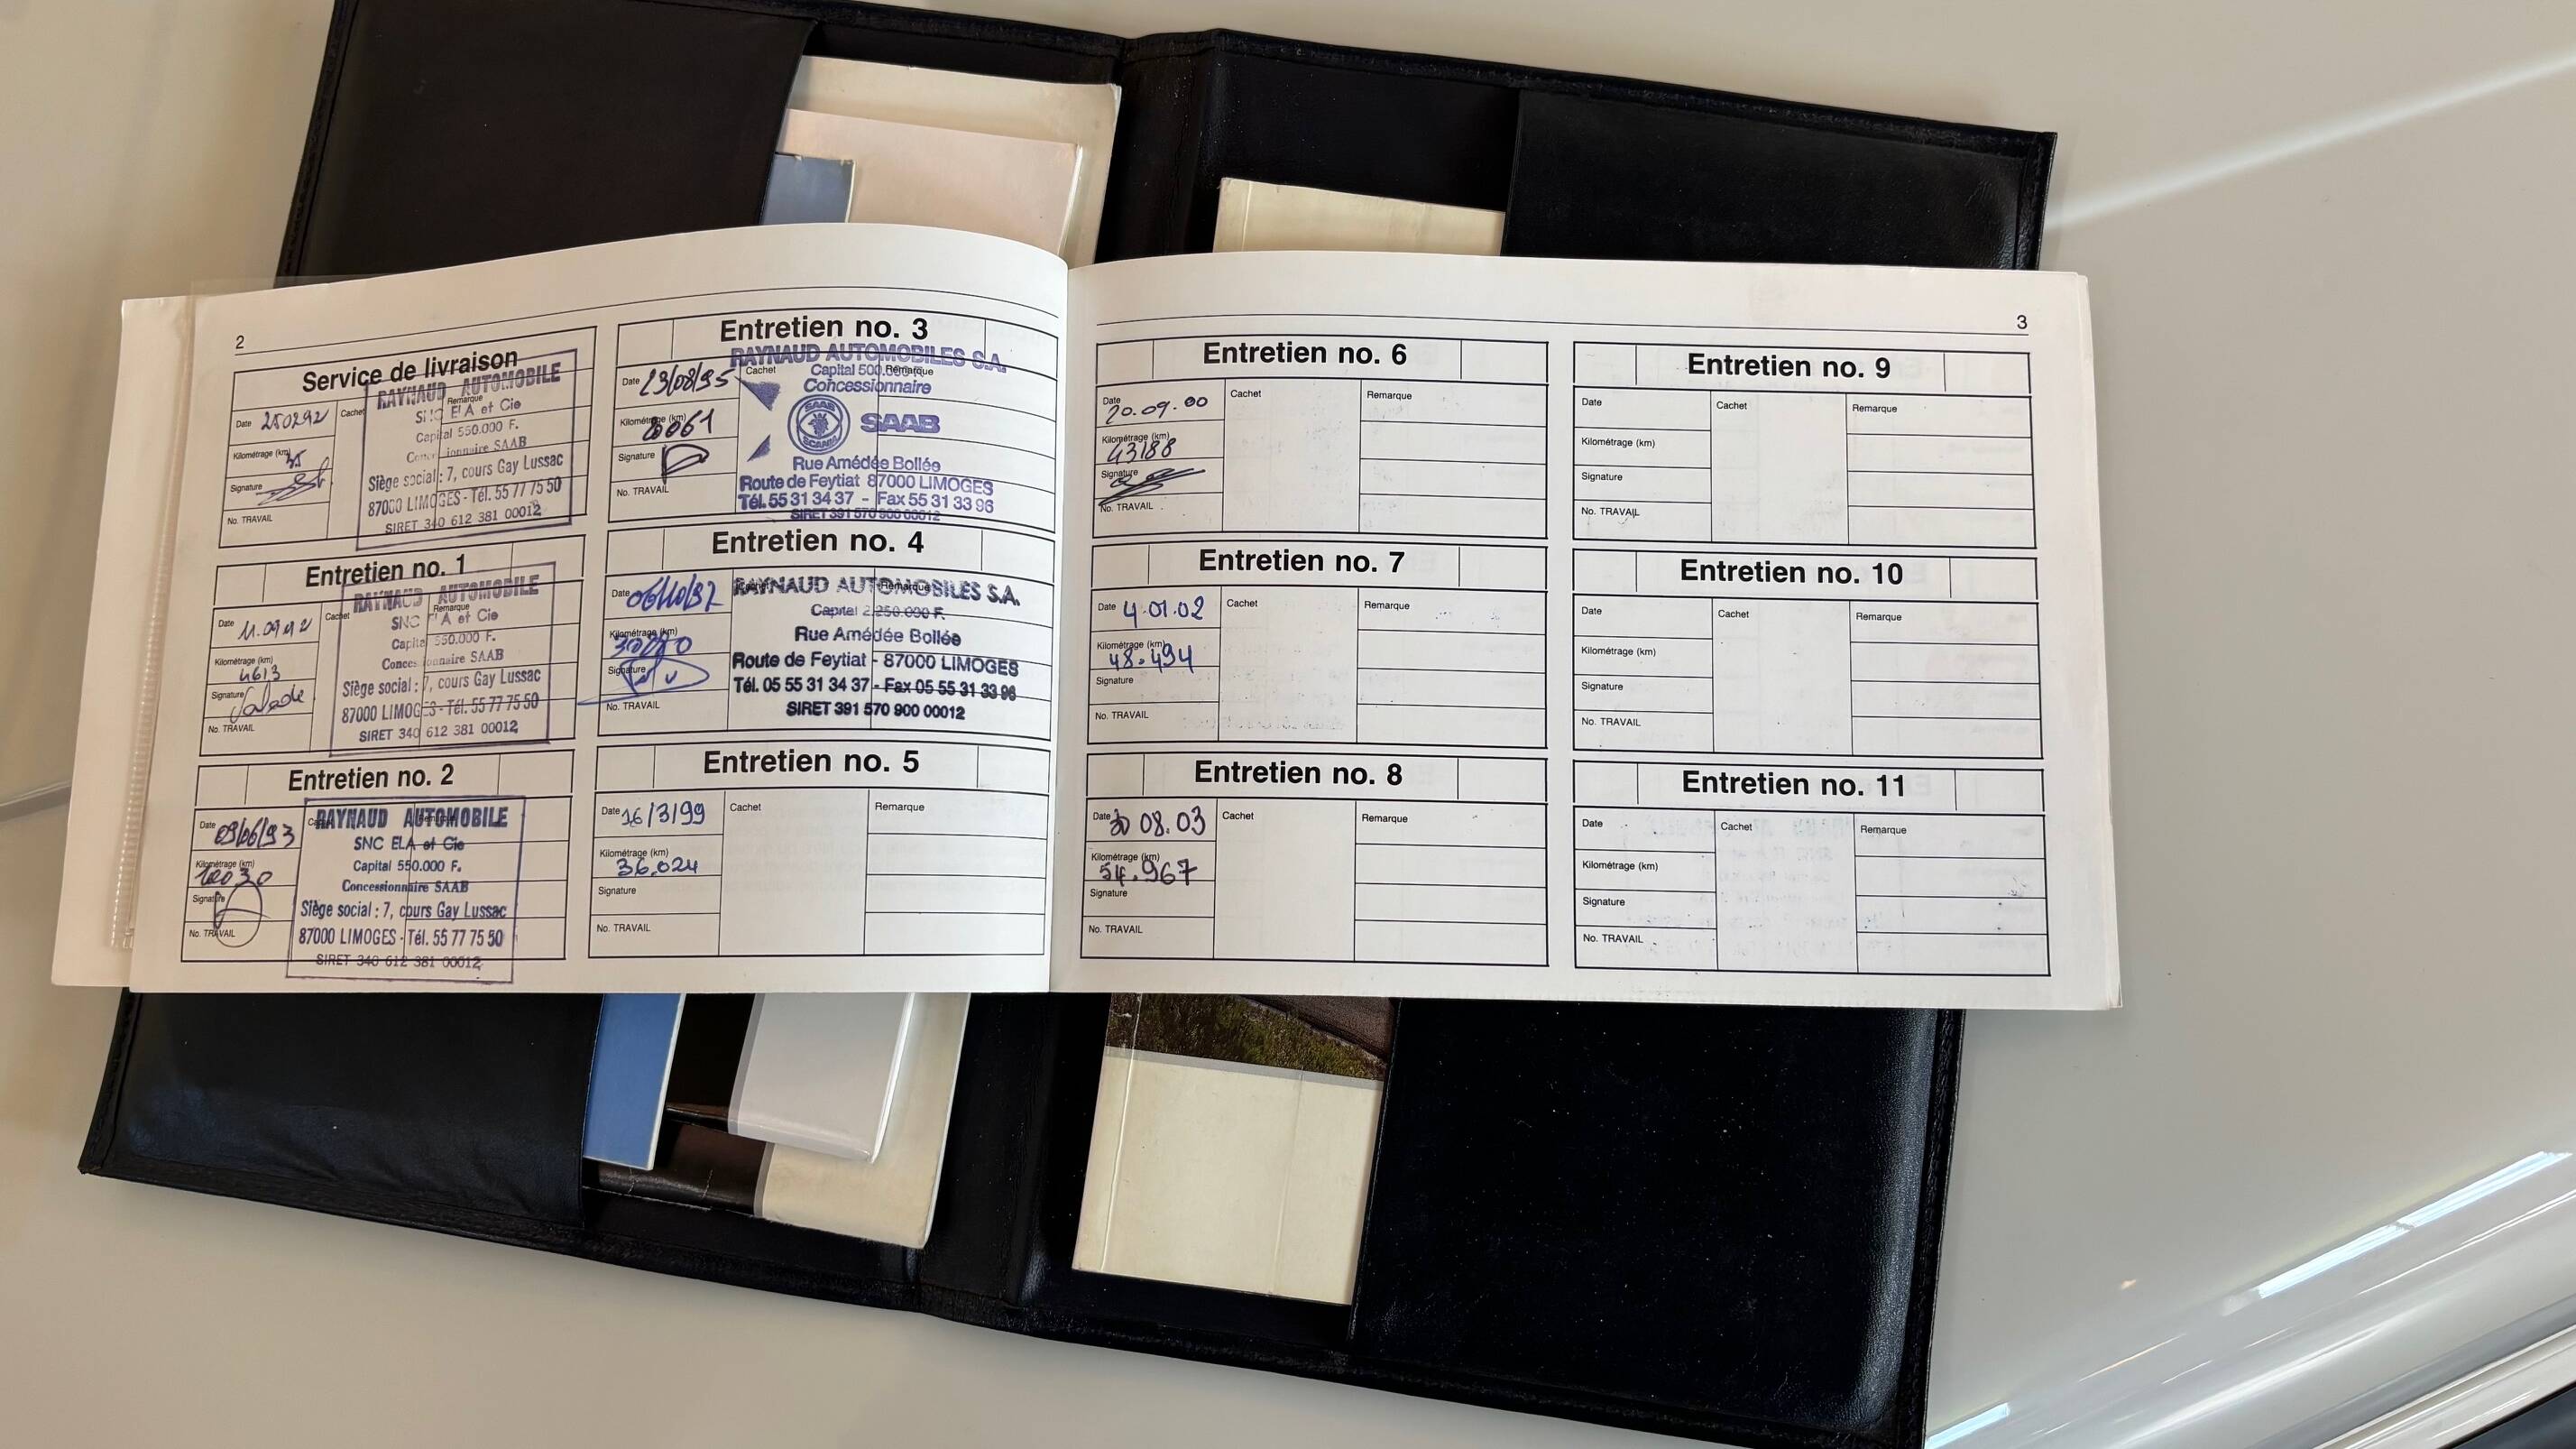 2
Service de livraison
Date 250292
Cachet
Remarque
Kilométrage (km) 35
Signature
No. TRAVAIL
RAYNAUD AUTOMOBILE
SNC ELA et Cie
Capital 550.000 F.
Concessionnaire SAAB
Siège social : 7, cours Gay Lussac
87000 LIMOGES - Tél. 55 77 75 50
SIRET 340 612 381 00012
Entretien no. 1
Date 11.09.92
Cachet
Remarque
Kilométrage (km)
4613
Signature
No. TRAVAIL
RAYNAUD AUTOMOBILE
SNC ELA et Cie
Capital 550.000 F.
Concessionnaire SAAB
Siège social : 7, cours Gay Lussac
87000 LIMOGES - Tél. 55 77 75 50
SIRET 340 612 381 00012
Entretien no. 2
Date 09/06/93
Kilométrage (km)
Signature
No. TRAVAIL
RAYNAUD AUTOMOBILE
SNC ELA et Cie
Capital 550.000 F.
Concessionnaire SAAB
Siège social : 7, cours Gay Lussac
87000 LIMOGES - Tél. 55 77 75 50
SIRET 340 612 381 00012
Entretien no. 3
Date 23/08/95
Cachet
Remarque
Kilométrage (km)
Signature
No. TRAVAIL
RAYNAUD AUTOMOBILES S.A.
Capital 500.000
Concessionnaire
SAAB
SCANIA
SAAB
Rue Amédée Bollée
Route de Feytiat 87000 LIMOGES
Tél. 55 31 34 37 - Fax 55 31 33 96
SIRET 391 570 900 00012
Entretien no. 4
Date 06/10/97
Cachet
Remarque
Kilométrage (km)
Signature
No. TRAVAIL
RAYNAUD AUTOMOBILES S.A.
Capital 2.250.000 F.
Rue Amédée Bollée
Route de Feytiat - 87000 LIMOGES
Tél. 05 55 31 34 37 - Fax 05 55 31 33 96
SIRET 391 570 900 00012
Entretien no. 5
Date 16/3/99
Cachet
Remarque
Kilométrage (km)
36.024
Signature
No. TRAVAIL
3
Entretien no. 6
Date
20.09.00
Cachet
Remarque
Kilométrage (km)
43188
Signature
No. TRAVAIL
Entretien no. 7
Date 4.01.02
Cachet
Remarque
Kilométrage (km)
48.494
Signature
No. TRAVAIL
Entretien no. 8
Date 30 08.03
Cachet
Remarque
Kilométrage (km)
54.967
Signature
No. TRAVAIL
Entretien no. 9
Date
Cachet
Remarque
Kilométrage (km)
Signature
No. TRAVAIL
Entretien no. 10
Date
Cachet
Remarque
Kilométrage (km)
Signature
No. TRAVAIL
Entretien no. 11
Date
Cachet
Remarque
Kilométrage (km)
Signature
No. TRAVAIL